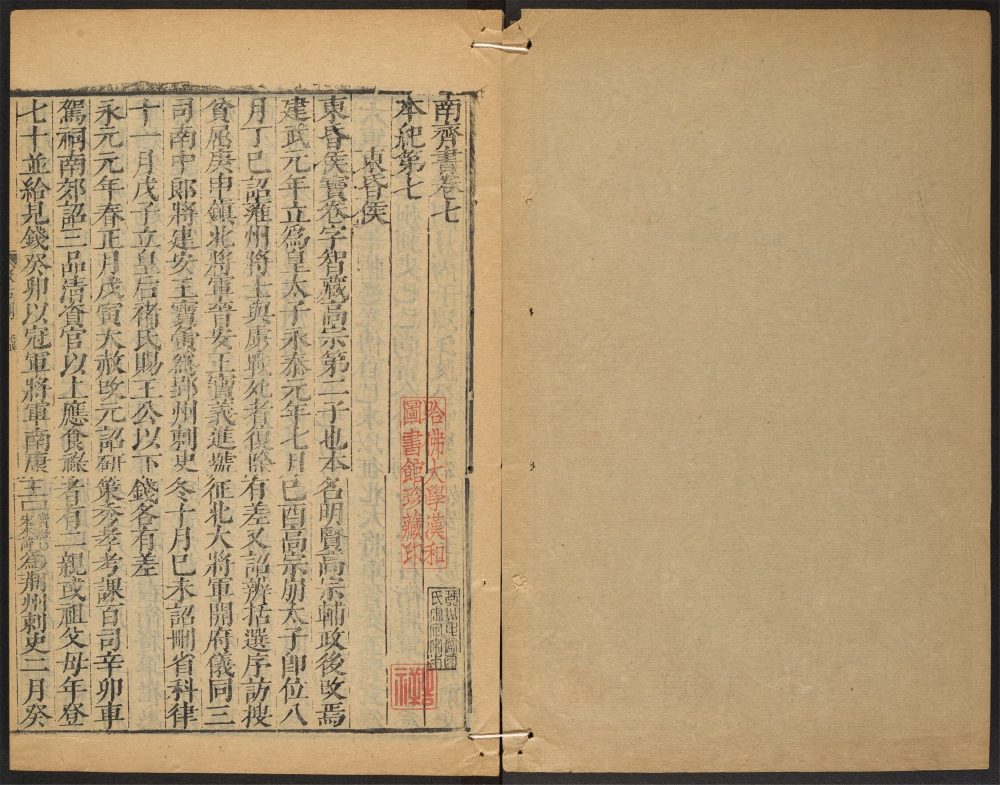 南齊書卷七
本紀第七
東昏侯
東昏侯寶卷字智藏高宗第二子也本名明賢高宗輔政後改焉
建武元年立爲皇太子永泰元年七月己酉高宗崩太子即位八
月丁巳詔雍州將士與虜戰死者復除有差又詔辨括選序訪搜
貧屈庚申鎮北將軍晉安王寶義進號征北大將軍開府儀同三
司南中郎將建安王寶寅爲郢州刺史冬十月己未詔刪省科律
十一月戊子立皇后褚氏賜王公以下錢各有差
永元元年春正月戊寅大赦改元詔研策秀孝考課百司辛卯車
駕祠南郊詔三品清資官以上應食祿者有二親或祖父母年登
七十並給見錢癸卯以冠軍將軍南康王為荊州刺史二月癸
哈佛大學漢和
圖書館珍藏印